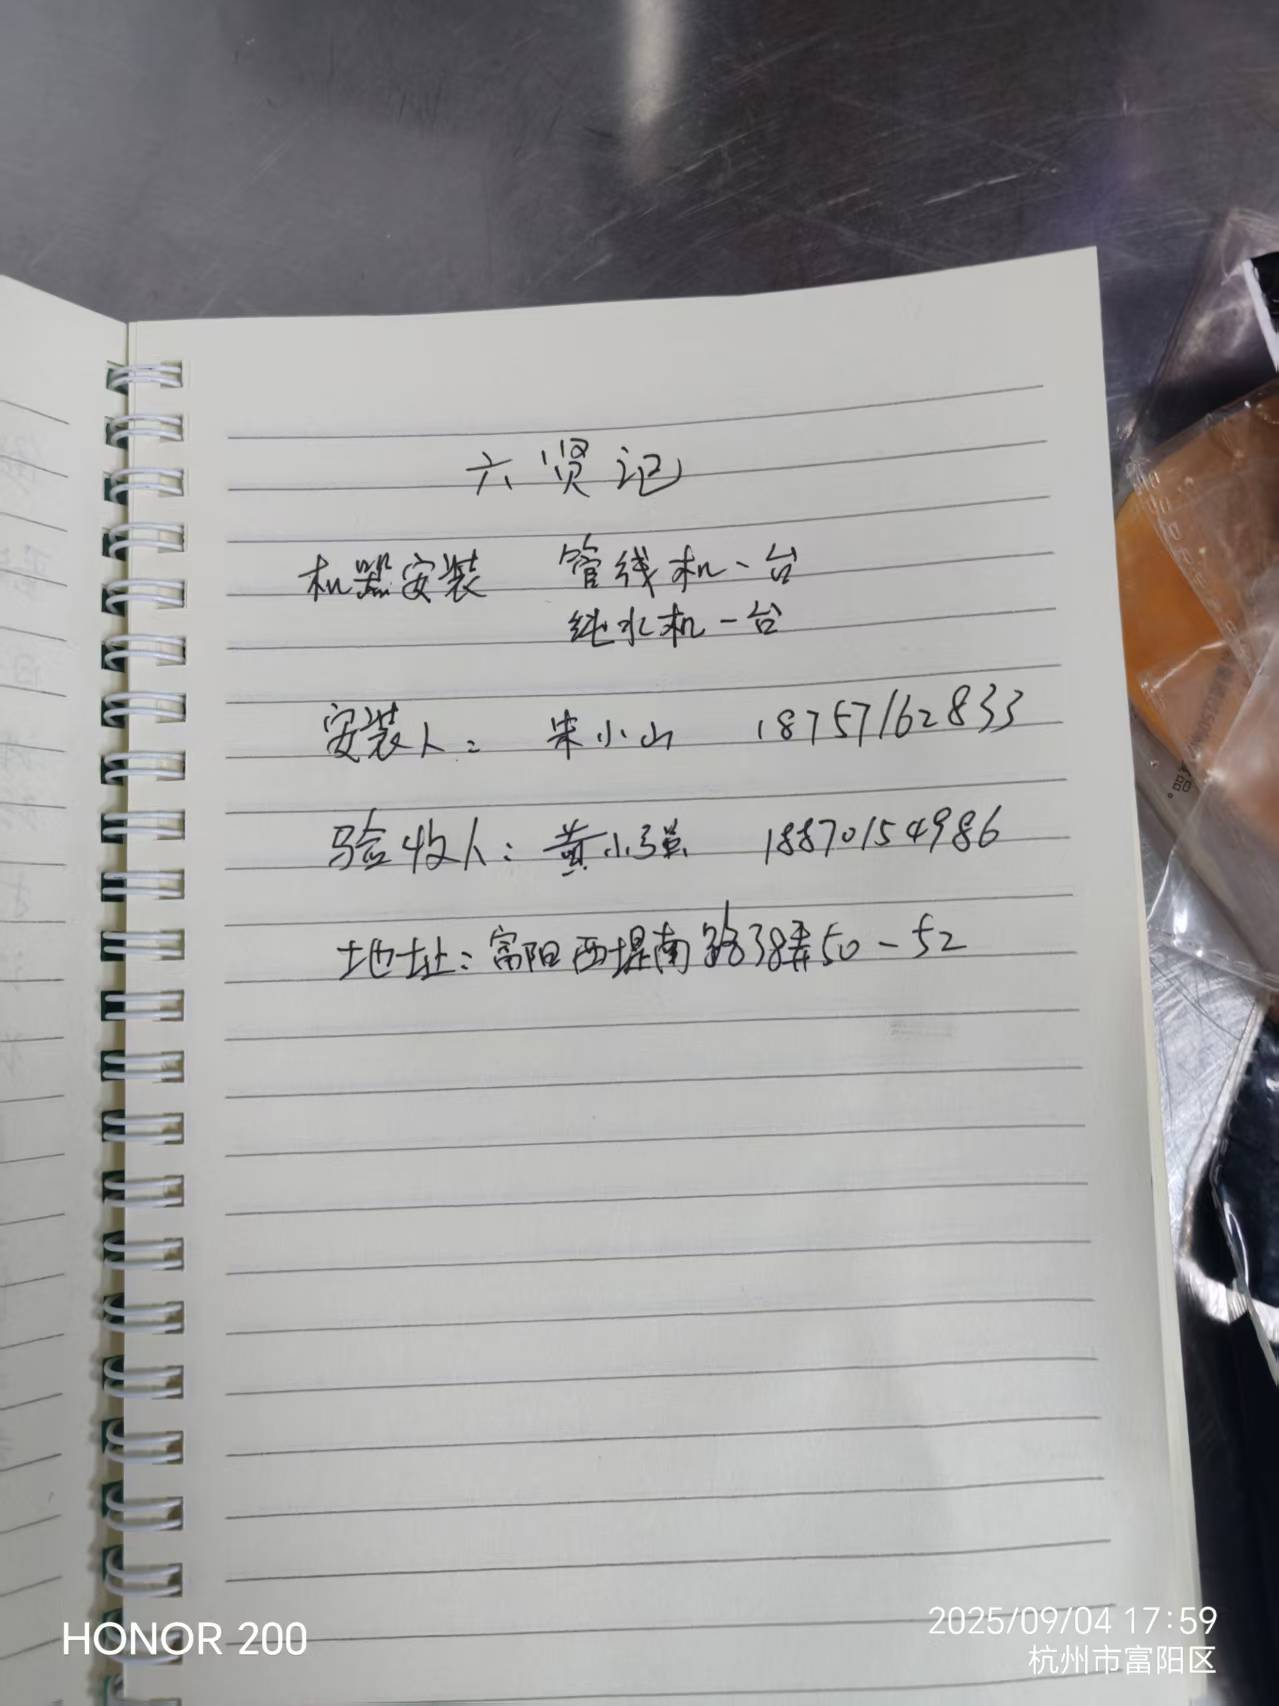 六贤记
机器安装 管线机一台
纯水机一台
安装人：朱小山 18757162833
验收人：黄小强 18870154986
地址：富阳西堤南路38弄50-52
HONOR 200
2025/09/04 17:59
杭州市富阳区